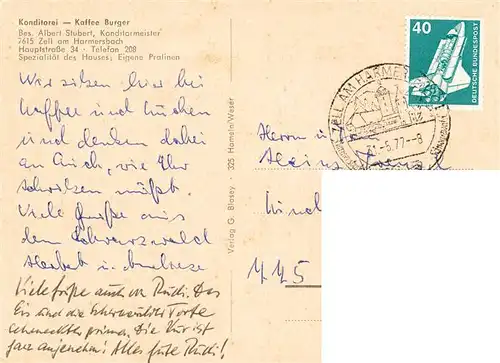 Konditorei — Kaffee Burger
Bes. Albert Stubert, Konditormeister
7615 Zell am Harmersbach
Hauptstraße 34 · Telefon 208
Spezialität des Hauses: Eigene Pralinen
Wir sitzen hier bei
Kaffee und Kuchen
und denken dabei
an Euch, wie Ihr
schwitzen müßt.
Viele Grüße aus
dem Schwarzwald
Herbert u.
Viele Grüße auch von Rudi. Das
Eis und die Schwarzwälder Torte
schmeckten prima. Die Kur ist
ganz angenehm! Alles Gute Rudi!
Verlag G. Blasey · 325 Hameln/Weser
40
DEUTSCHE BUNDESPOST
ZELL AM HARMERSBACH
-6.77-8
Herrn u.
Heinz
445